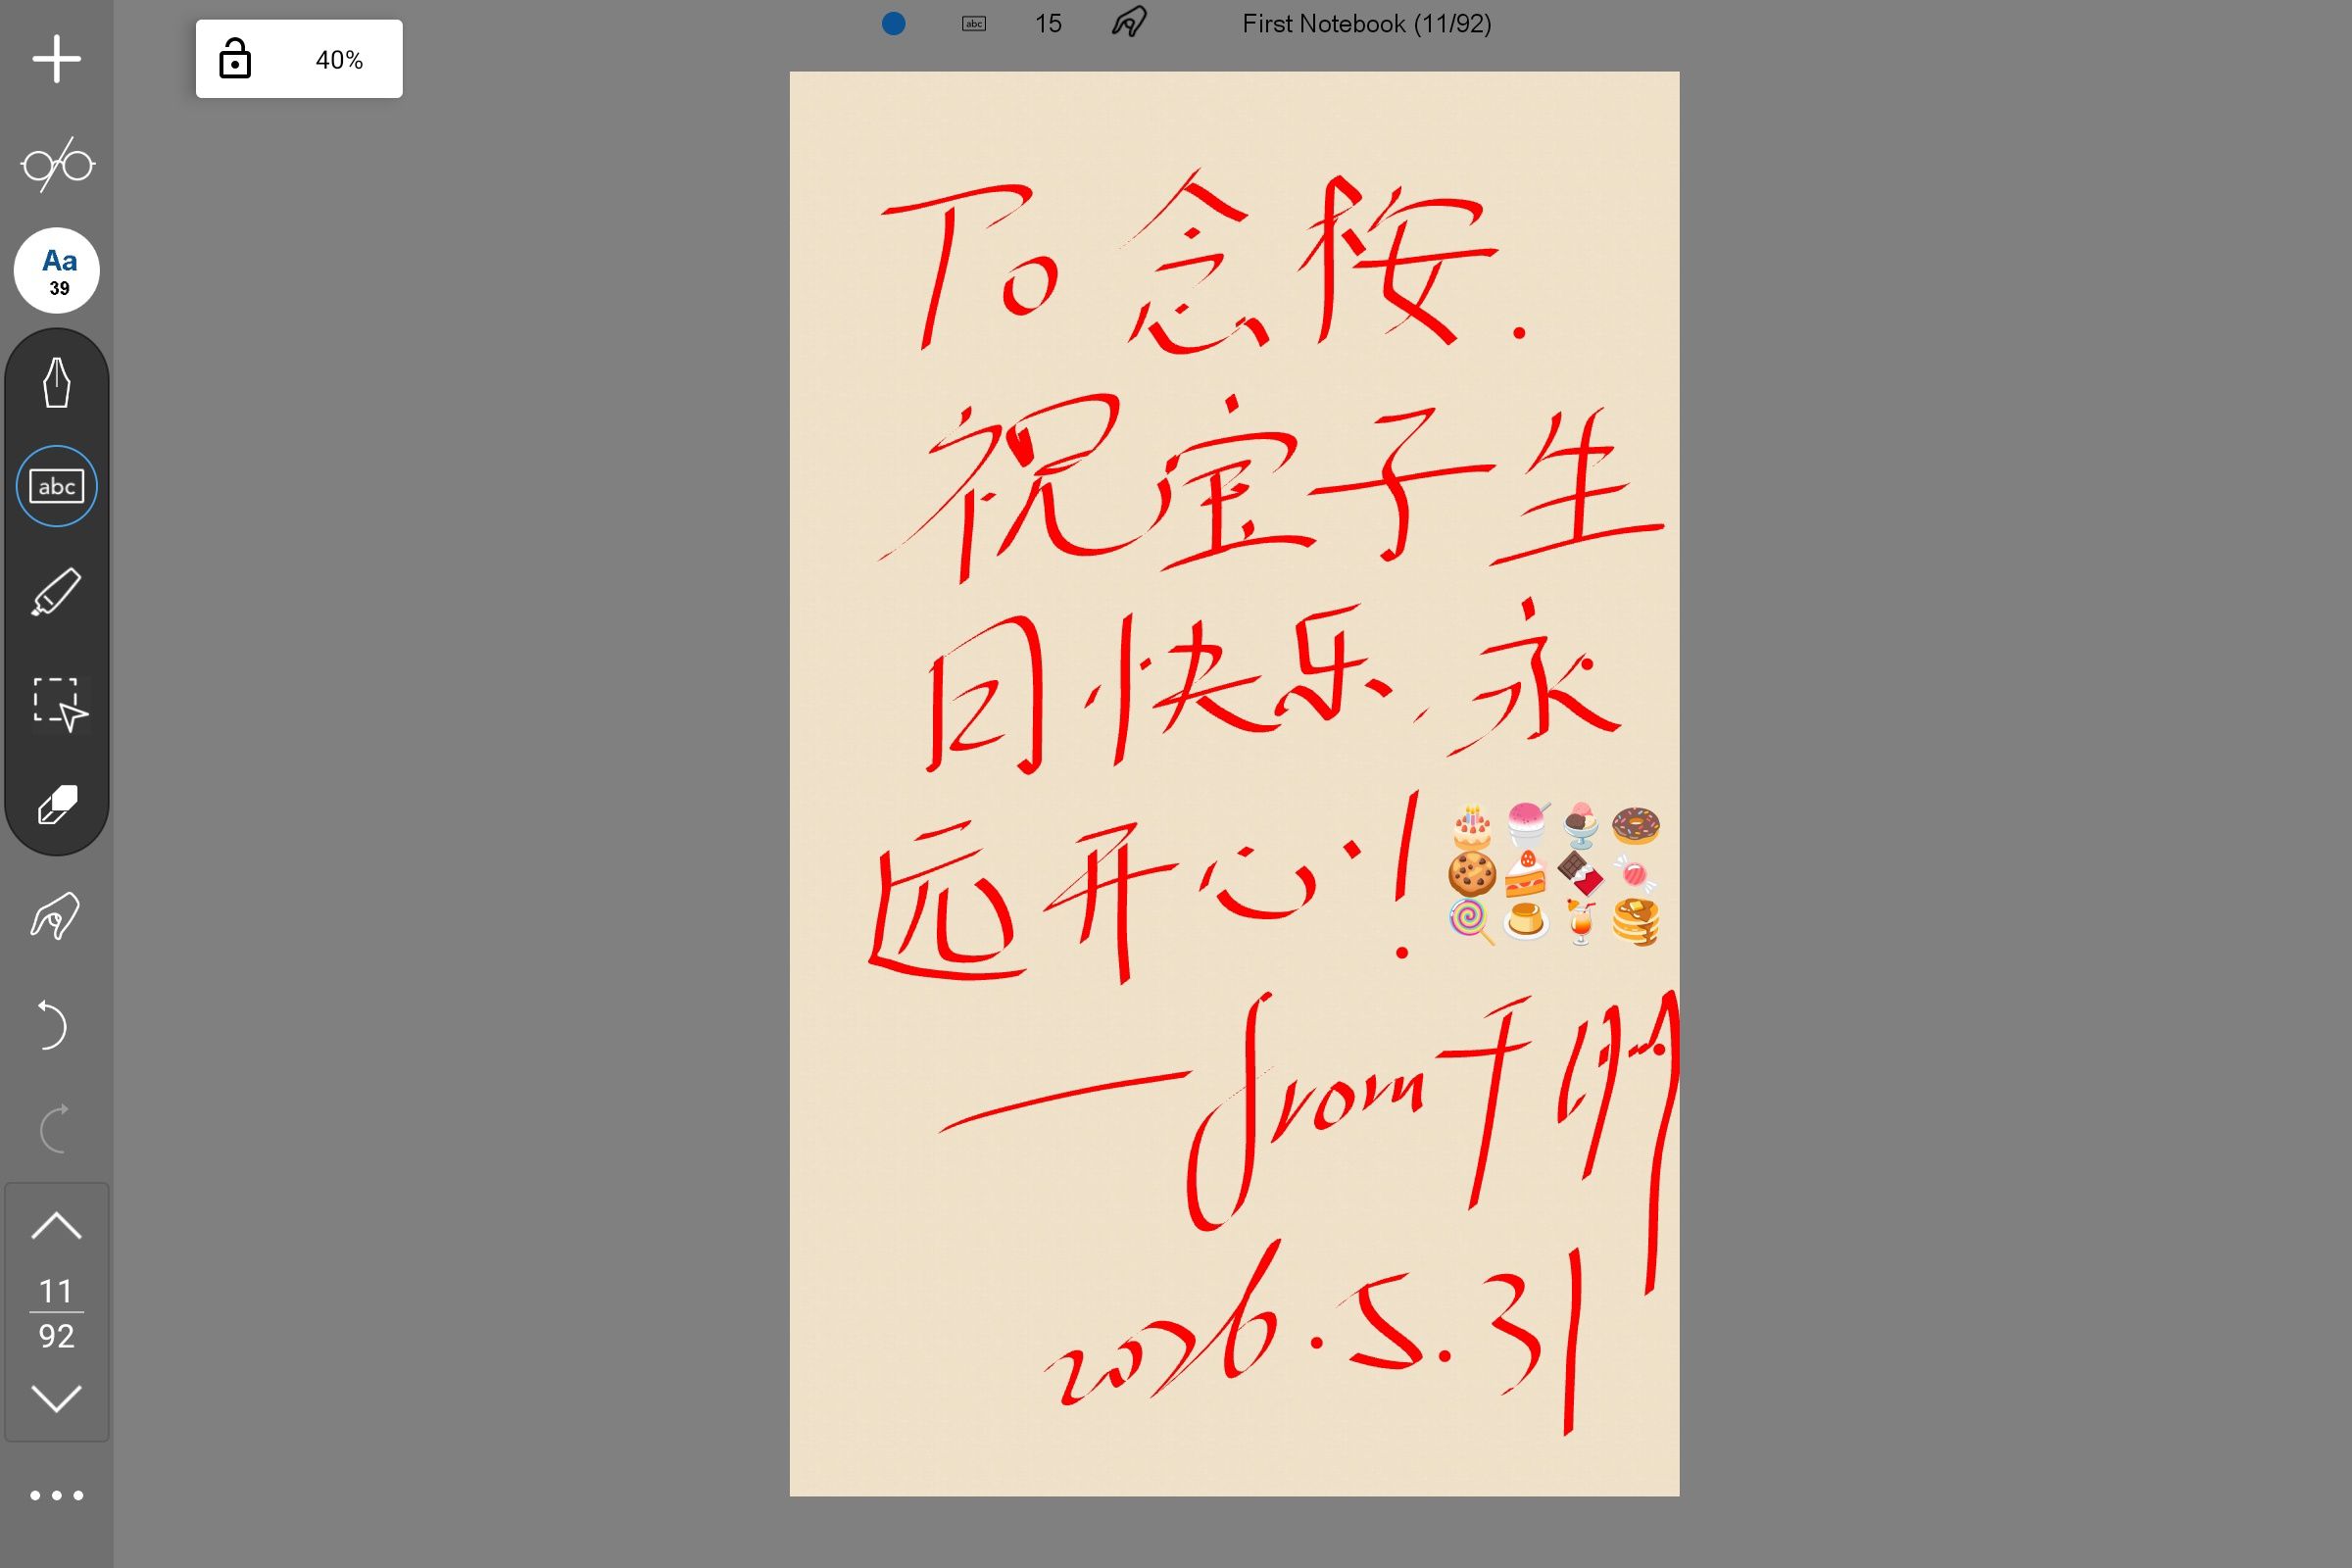 40%
15 First Notebook (11/92)
Aa
39
abc
11
92
To 念桉.
祝宝子生
日快乐,永
远开心!
——from千
2026.5.31